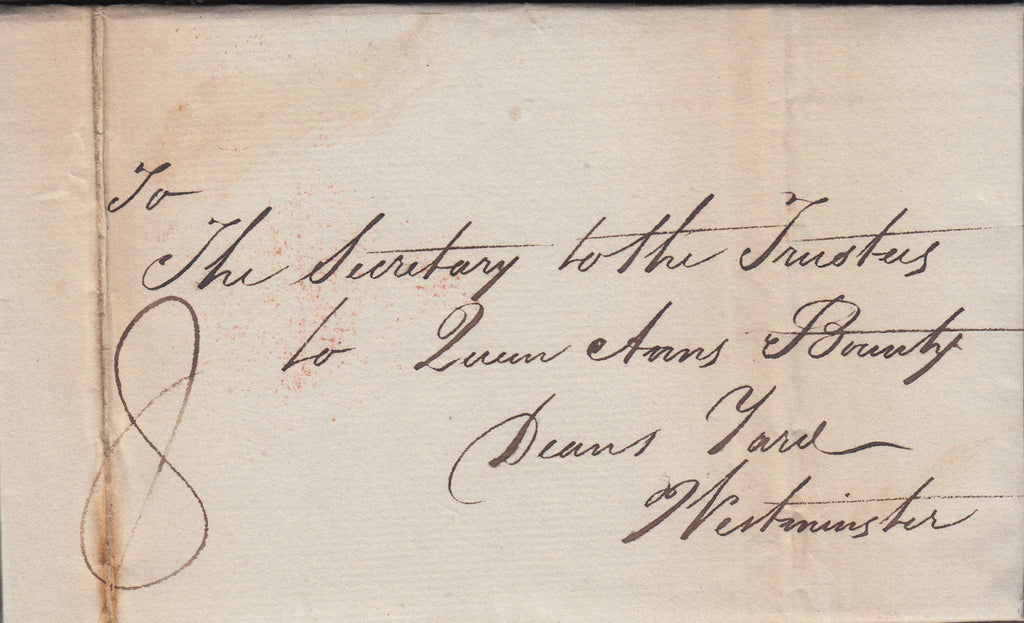 To
The Secretary to the Trustees
to Queen Anns Bounty
Deans Yard
Westminster
8